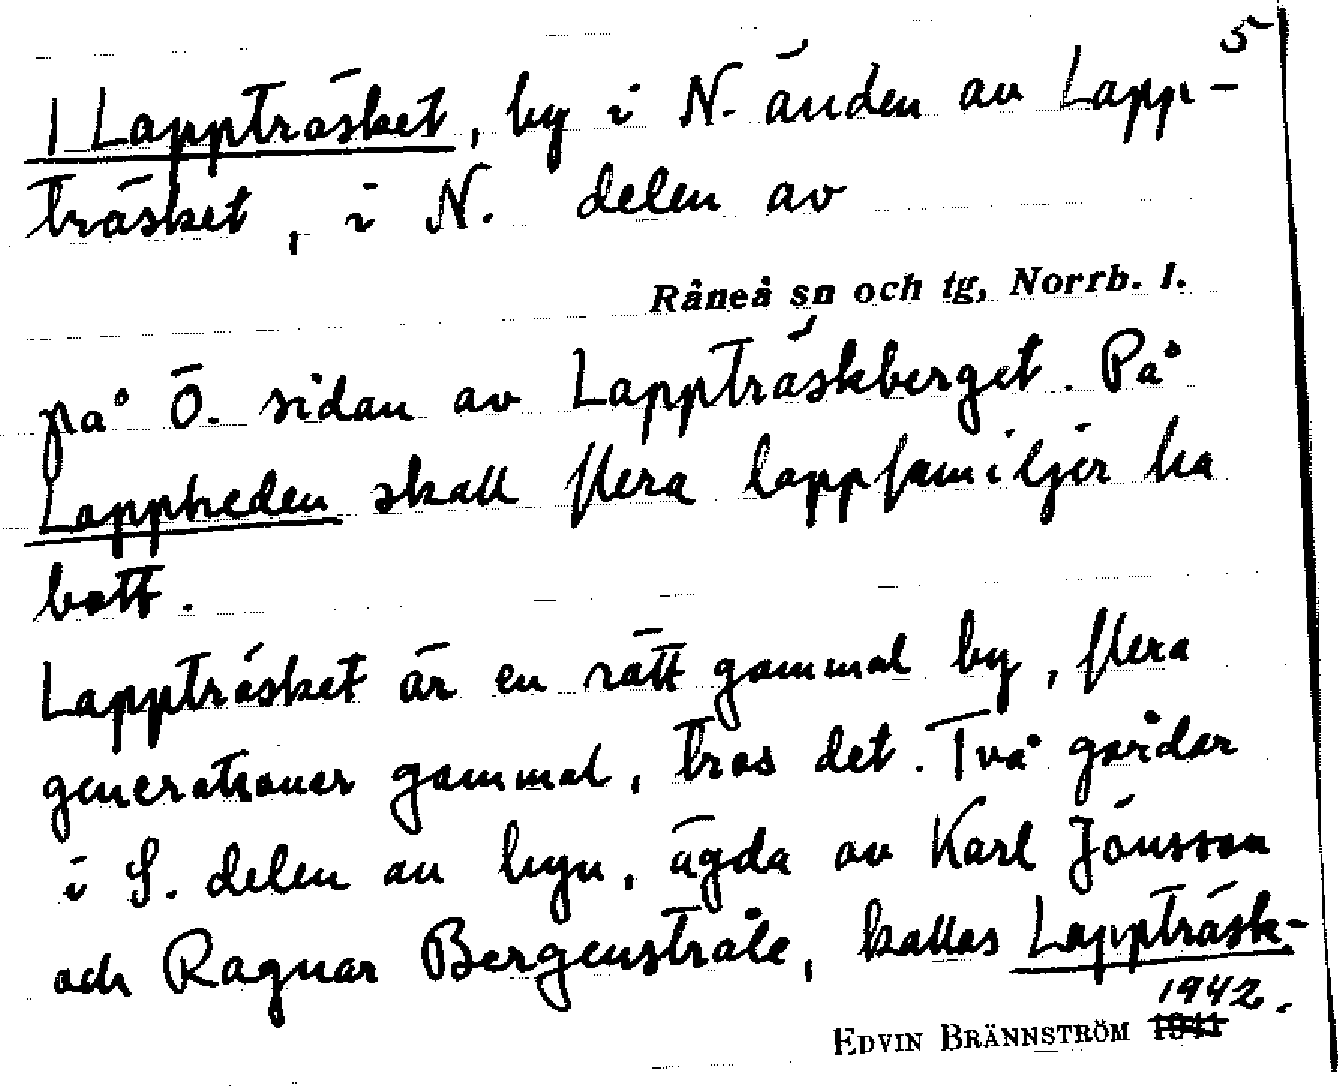 5
1 Lappträsket, by i N. änden av Lapp-
träsket, i N. delen av
Råneå sn och tg, Norrb. l.
på Ö. sidan av Lappträskberget. På
Lappheden skall flera lappfamiljer ha
bott.
Lappträsket är en rätt gammal by, flera
generationer gammal, tros det. Två gårdar
i S. delen av byn, ägda av Karl Jönsson
och Ragnar Bergenstråle, kallas Lappträsk-
1942.
EDVIN BRÄNNSTRÖM 1941